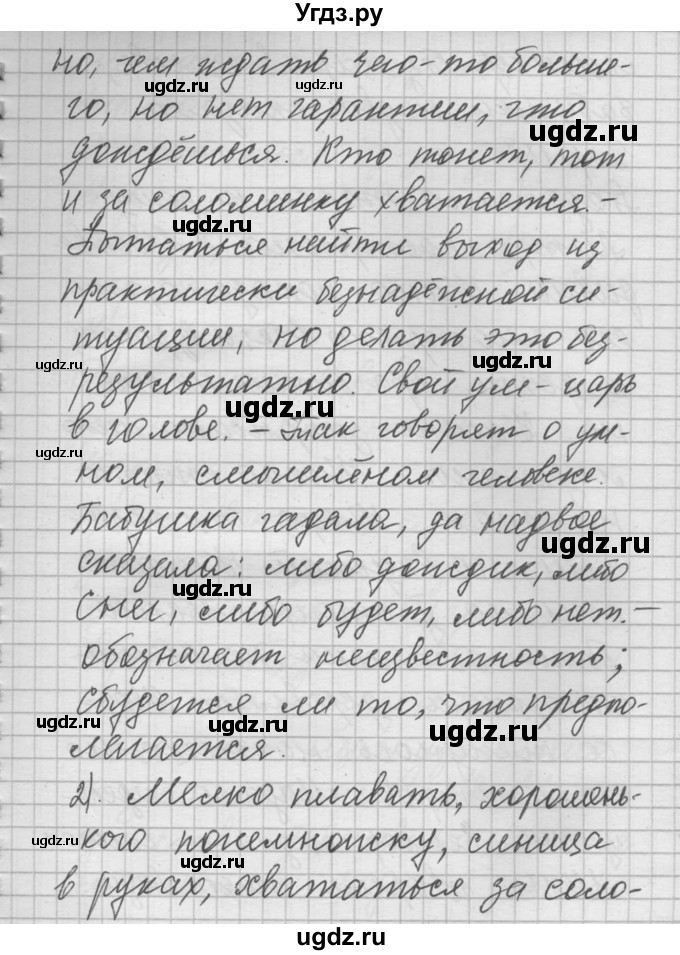 Угдз.ру
но, чем ждать чего-то больше-
го, но нет гарантии, что
дождёшься. Кто тонет, тот
и за соломинку хватается. -
Пытаться найти выход из
практически безнадёжной си-
туации, но делать это без-
результатно. Свой ум - царь
в голове. - Так говорят о ум-
ном, смышлёном человеке.
Бабушка гадала, да надвое
сказала: либо дождик, либо
снег, либо будет, либо нет. -
обозначает неизвестность;
сбудется ли то, что предпо-
лагается.
2). Мелко плавать, хорошень-
кого понемножку, синица
в руках, хвататься за соло-
ugdz.ru